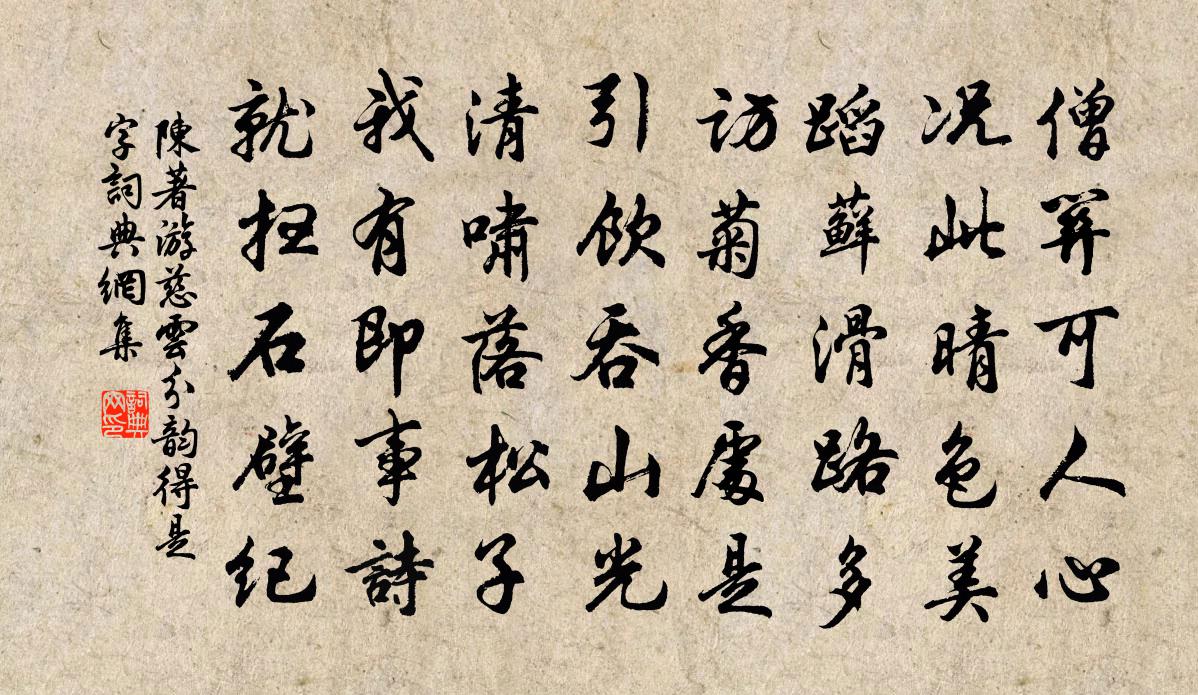 僧閑可人心
况此晴色美
蹈蘚滑路多
訪菊香處是
引飲吞山光
清嘯落松子
我有即事詩
就扫石壁纪
陳著游慈雲分韵得是
字詞典網集
詞典网印